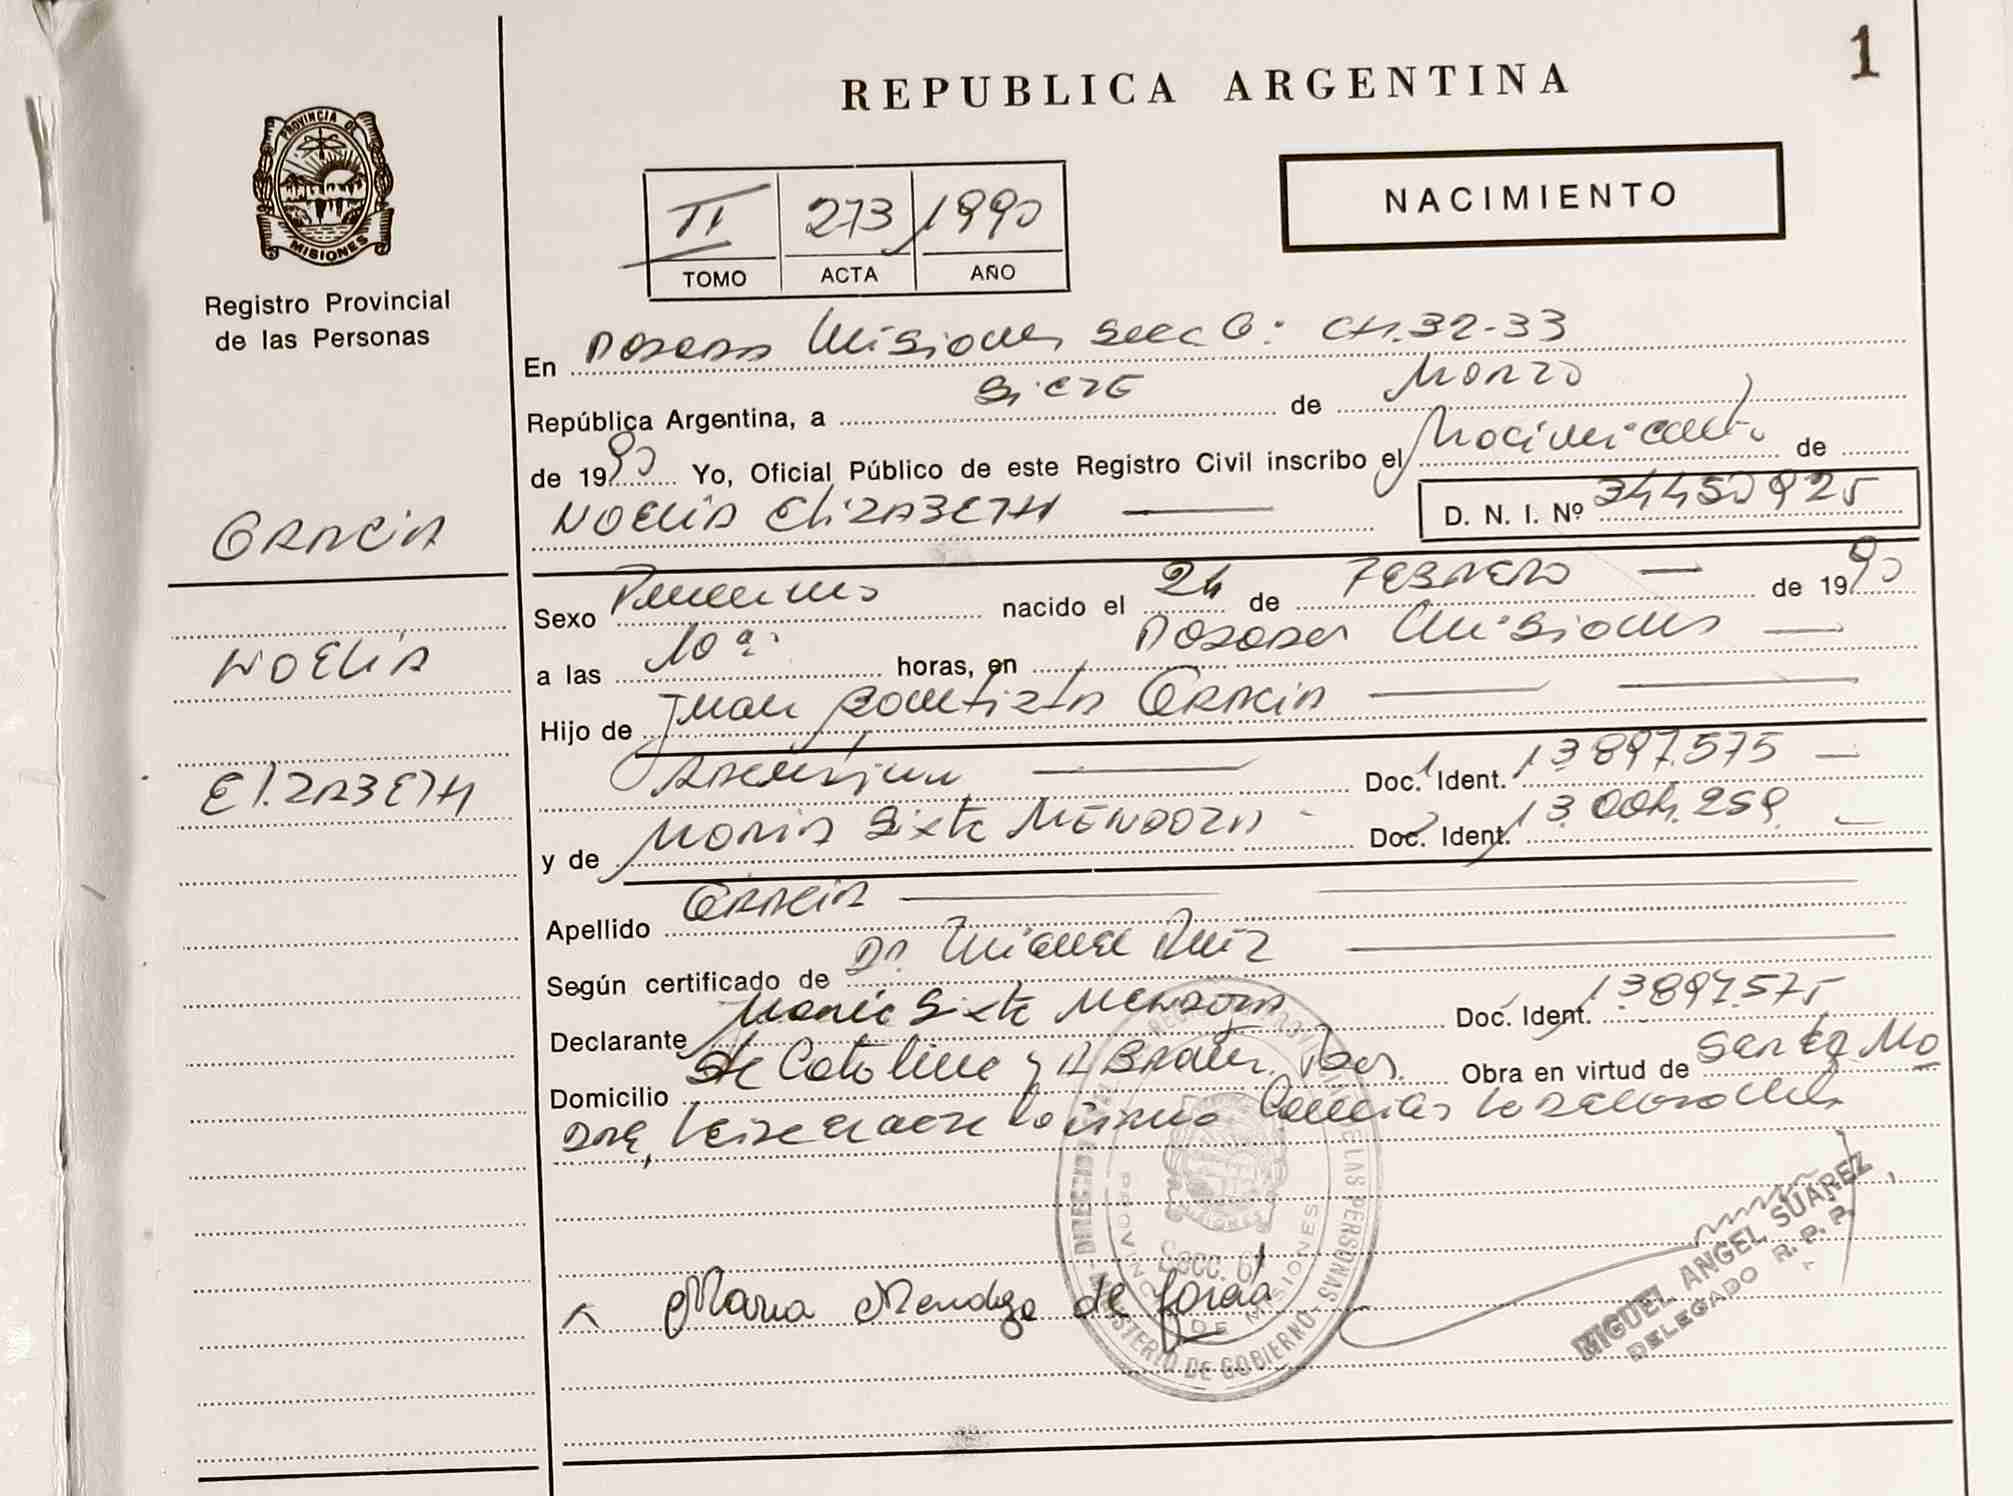 1
REPUBLICA ARGENTINA
PROVINCIA DE
MISIONES
Registro Provincial
de las Personas
NACIMIENTO
II 273 1990
TOMO ACTA AÑO
En Posadas Misiones Secc 6: CH. 32-33
República Argentina, a siete de Marzo
de 1990 Yo, Oficial Público de este Registro Civil inscribo el Nacimiento de
NOELIA ELIZABETH D. N. I. Nº 34450925
GARCIA
NOELIA
ELIZABETH
Sexo Femenino nacido el 24 de FEBRERO de 1990
a las 10 horas, en Posadas Misiones
Hijo de Juan Bautista GARCIA
Argentina Doc. Ident. 13.897.575
y de Maria Sixta MENDOZA Doc. Ident. 13.004.259
Apellido GARCIA
Según certificado de Dr. Miguel Ruiz
Declarante Maria Sixta Mendoza Doc. Ident. 13.897.575
Domicilio Sta Catalina y A Brown. Pos. Obra en virtud de
MINISTERIO DE GOBIERNO
DIRECCION
DE LAS PERSONAS
PROVINCIA DE MISIONES
SECC. 6
Maria Mendoza de Garcia
MIGUEL ANGEL SUAREZ
DELEGADO R. P. P.